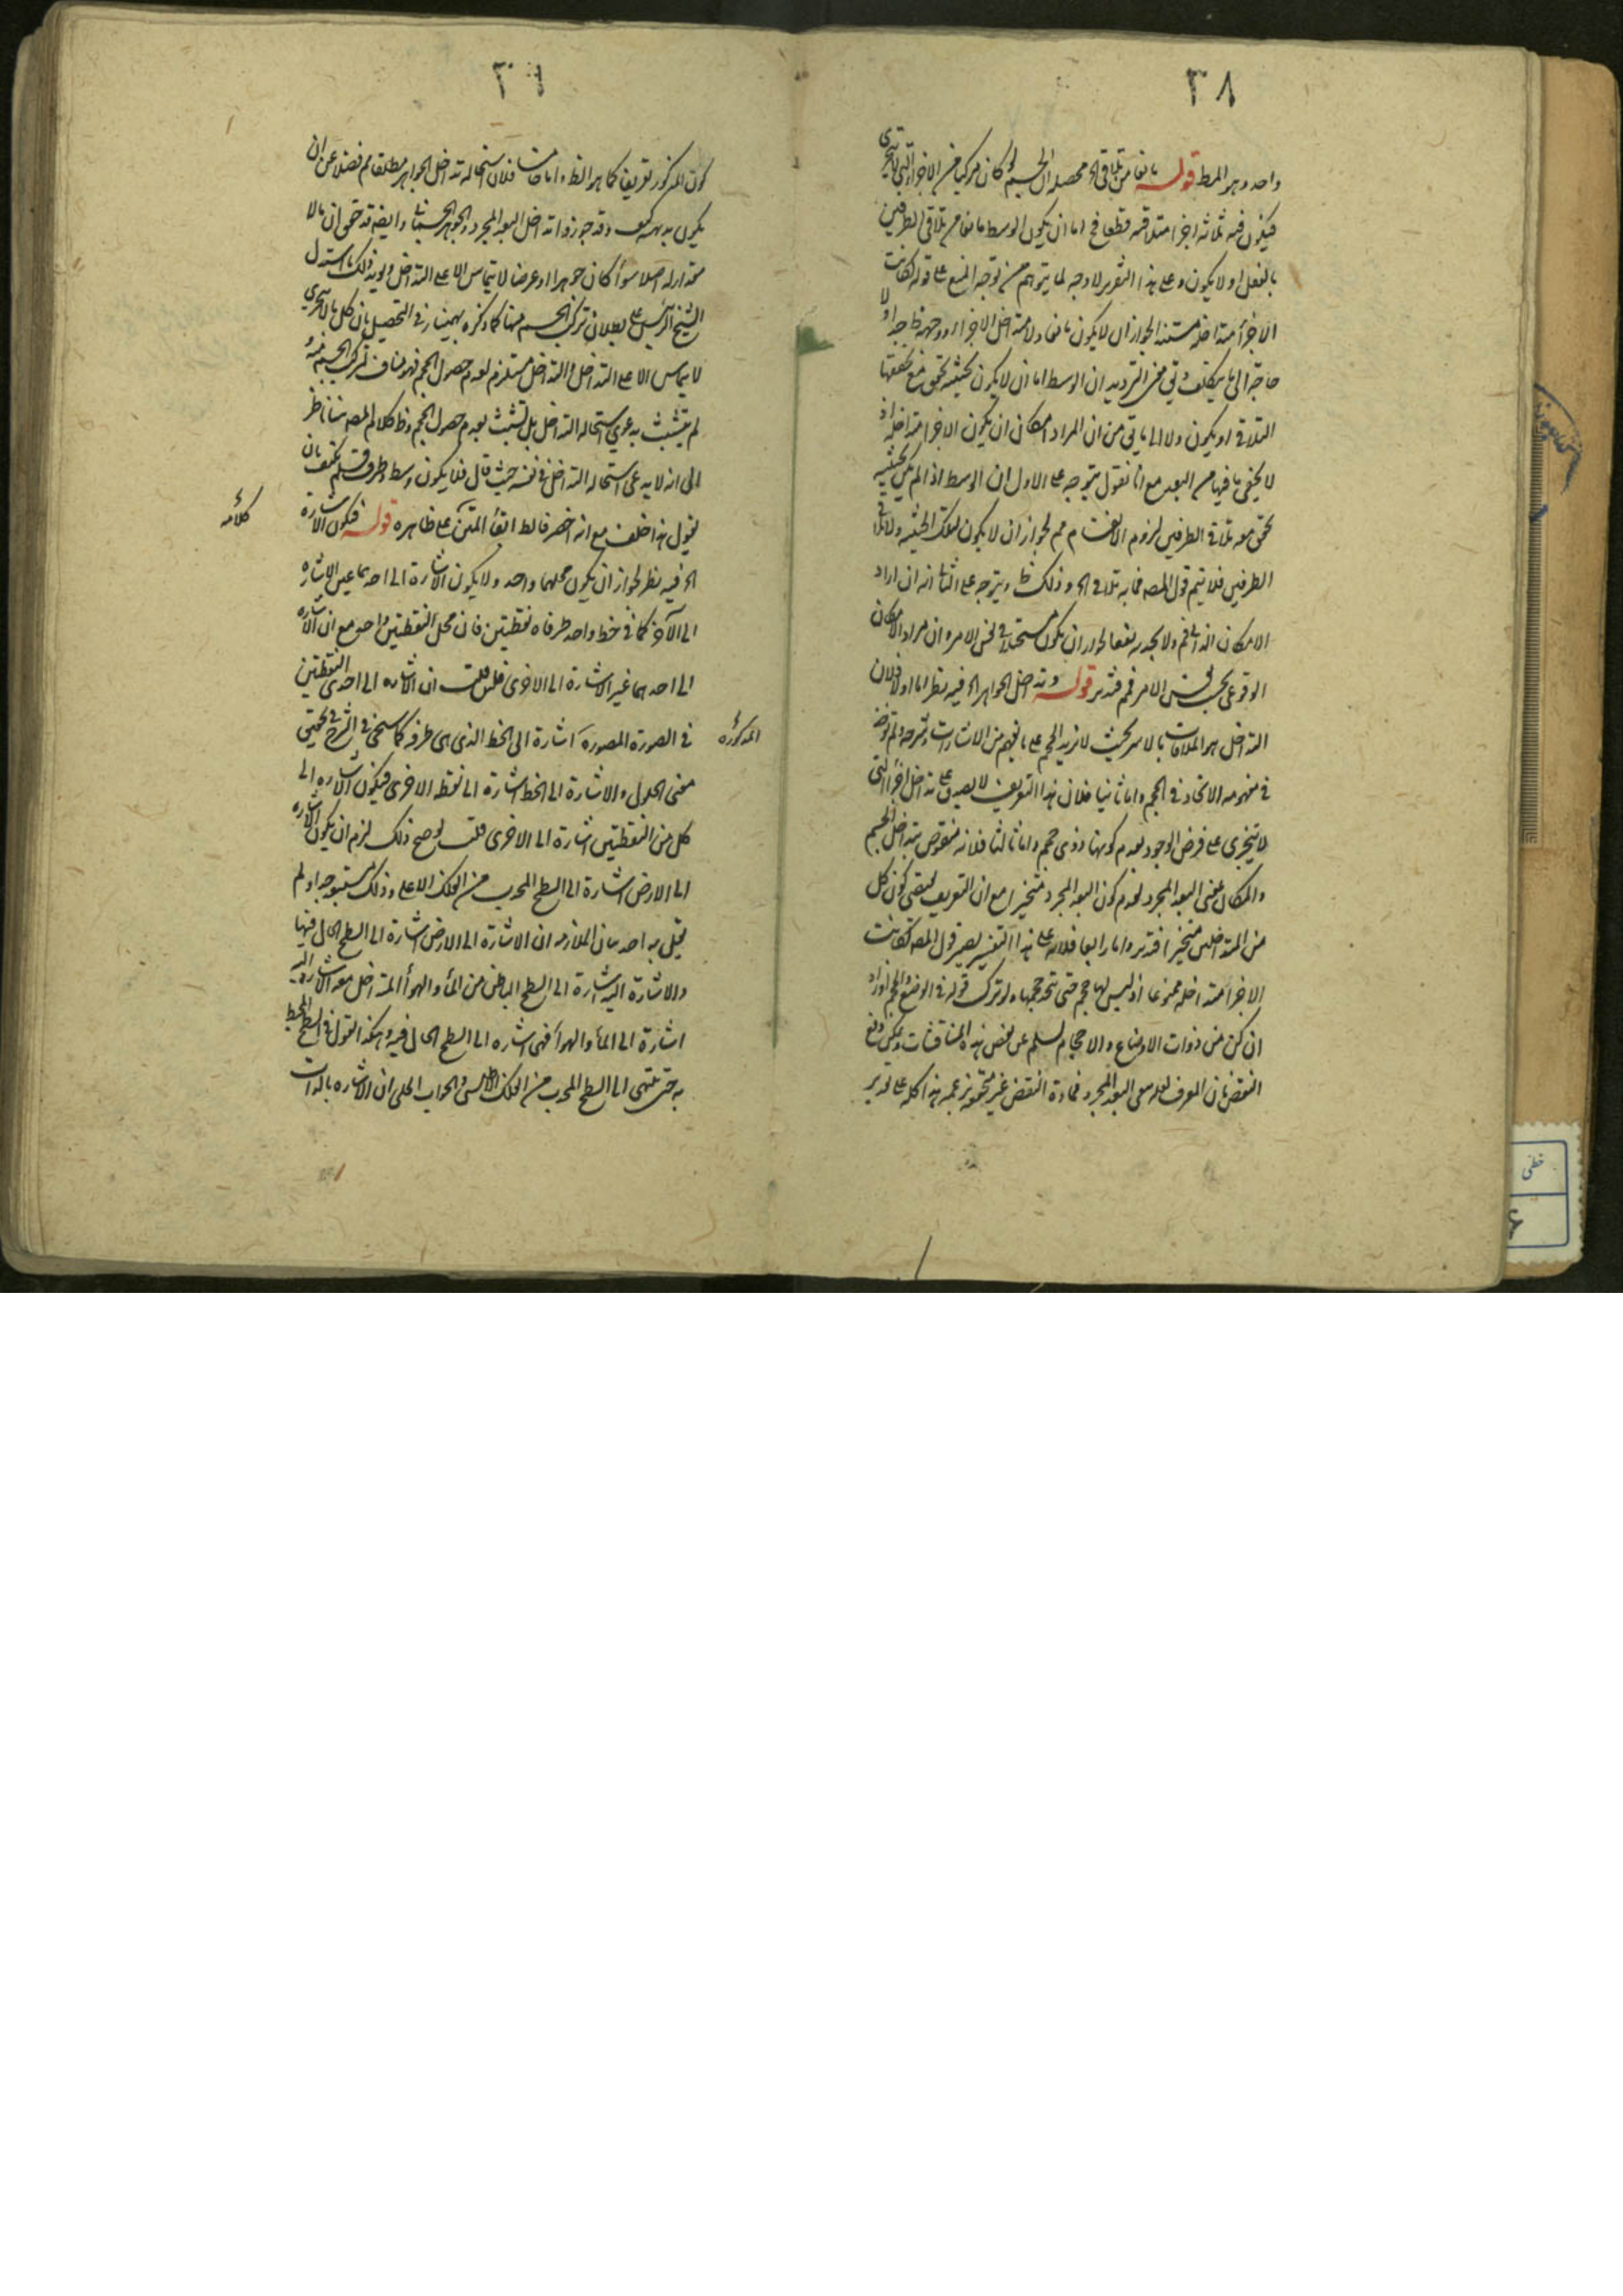 ٣٨
واحد وهو المط قوله مانعا من تلاقى الخ محصله ان الجسم لو كان مركبا من الاجزاء التى لا يتجزى
فيكون فيه ثلاثة اجزاء متلاقية قطعا فح اما ان يكون الوسط مانعا من تلاقى الطرفين
بالفعل او لا يكون وعلى هذا التقرير لا وجه لما يتوهم من توجه المنع على قوله لكانت
الاجزاء متداخلة مستندا لجواز ان لا يكون مانعا ولا متداخل الاجزاء ووجهه ظ جدا ولا
حاجة الى ما يتكلف وفى من الترديد ان الوسط اما ان لا يكون بحيثية يتحقق مع تحققها
التلاقى او يكون ولا الى ما يق من ان المراد امكان ان يكون الاجزاء متداخلة اذ
لا يخفى ما فيها من البعد مع انا نقول يتوجه على الاول ان الوسط اذا لم يكن بحيثية
تحقق معه تلاقى الطرفين لزوم الانقسام مم لجواز ان لا يكون لتلك الحيثية ولا تلاقى
الطرفين فلا يتم قول المصه فما به تلاقى الخ وذلك ظ ويتوجه على الثانى انه ان اراد
الامكان الذاتى فم ولا يجديه نفعا لجواز ان يكون مستحيلا فى نفس الامر وان مراد الامكان
الوقوعى بحسب نفس الامر فم فتدبر قوله وتداخل الجواهر الخ فيه نظر اما اولا فلان
التداخل هو الملاقات بالاسر بحيث لا يزيد الحجم على ما يفهم من الاشارات وشرحه ولم يؤخذ
فى مفهومه الاتحاد فى الحجم واما ثانيا فلان هذا التعريف لا يصدق على تداخل اجزاء التى
لا تتجزى على فرض الوجود لعدم كونها ذوى حجم واما ثالثا فلانه منقوض بتداخل الجسم
والمكان بمعنى البعد المجرد لعدم كون البعد المجرد متحيزا مع ان التعريف يقتضى كون كل
من المتداخلين متحيزا فتدبر واما رابعا فلانه على هذا التفسير يصير قول المصه لكانت
الاجزاء متداخلة ممنوعا اذ ليس لها حجم حتى يتحد حجمها ولو ترك قوله فى الوضع والحجم او زاد
ان كن من ذوات الاوضاع والاحجام لسلم عن بعض هذه المناقشات ويمكن دفع
النقض بان المعرف لعله نفى البعد المجرد فمادة النقض غير متحققة بزعمه هذا كله على تقدير
٣٩
كون المذكور تعريفا كما هو الظ واما خامسا فلان استحالة تداخل الجواهر مطلقا مم فضلا عن ان
يكون بديهية كيف وقد جوزوا تداخل البعد المجرد والجواهر الجسمانى وايضا قد حقق ان ما لا
مقدار له اصلا سواء كان جوهرا او عرضا لا يتماس الا على التداخل ويؤيد ذلك ما استدل
الشيخ الرئيس على بطلان تركب الجسم منها كما ذكره بهمنيار فى التحصيل بان كل ما لا يتجزى
لا يماس الا على التداخل والتداخل مستلزم لعدم حصول الحجم فهو مناف لتركب الجسم منه و
لم يتشبث بدعوى استحالة التداخل بل تشبث بعدم حصول الحجم وظ كلام المصه هنا ناظر
الى انه لا يدعى استحالة التداخل فى نفسه حيث قال فلا يكون وسط وطرف فلم يكتف بان
يقول هذا خلف مع انه اخصر فالط ابقاء المتن على ظاهره قوله فتكون الاشارة
كلامه
الخ فيه نظر لجواز ان يكون محلهما واحد ولا يكون الاشارة الى احديهما عين الاشارة
الى الآخر كما فى خط واحد طرفاه نقطتين فان محل النقطتين واحد مع ان الاشارة
الى احديهما غير الاشارة الى الاخرى فان قلت ان الاشارة الى احدى النقطتين
المذكورة
فى الصورة المصورة اشارة الى الخط الذى هى طرفه كما سيحق فى الشرح فى تحقيق
معنى الحلول والاشارة الى الخط اشارة الى نقطة الاخرى فيكون الاشارة الى
كل من النقطتين اشارة الى الاخرى قلت لو صح ذلك لزم ان يكون الاشارة
الى الارض اشارة الى السطح المحدب من الفلك الاعلى وذلك مستبعد جدا ولم
يقل به احد بيان الملازمة ان الاشارة الى الارض اشارة الى السطح الحال فيها
والاشارة اليه اشارة الى السطح الباطن من الماء والهواء المتداخل معه والاشارة اليه
اشارة الى الماء والهواء فهى اشارة الى السطح الحال فيه وهكذا القول فى السطح المحيط
به حتى ينتهى الى السطح المحدب من الفلك الاطلس والجواب الحلى ان الاشارة بالذات